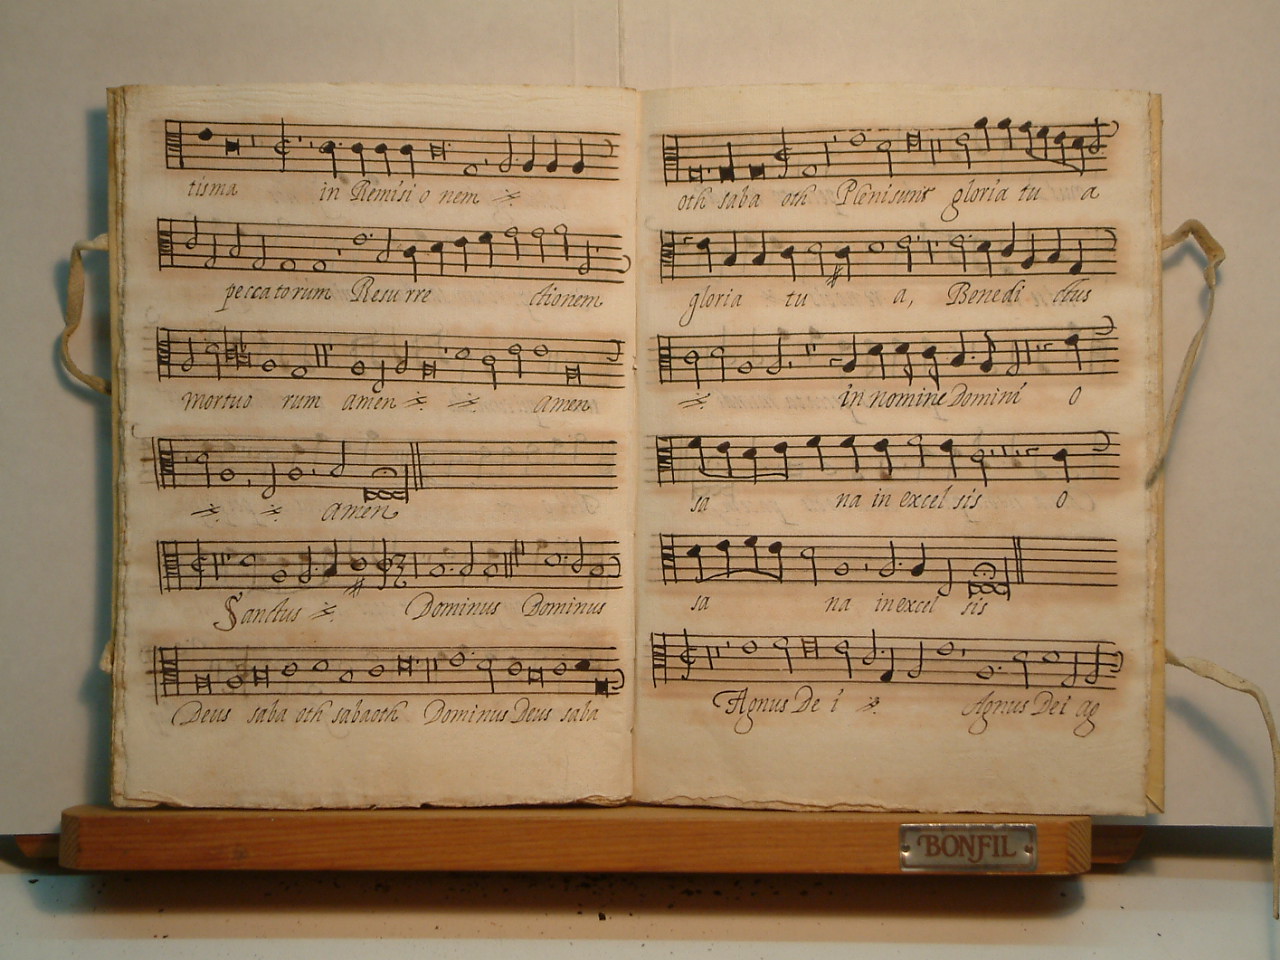 tisma in Remisi o nem
peccatorum Resu rre ctionem
mortuo rum amen amen
amen
Sanctus Dominus Dominus
Deus saba oth sabaoth Dominus Deus saba
oth saba oth Plenisunt gloria tu a
gloria tu a, Benedi ctus
in nomine Domini O
sa na in excel sis O
sa na in excel sis
Agnus De i Agnus Dei ag
BONFIL